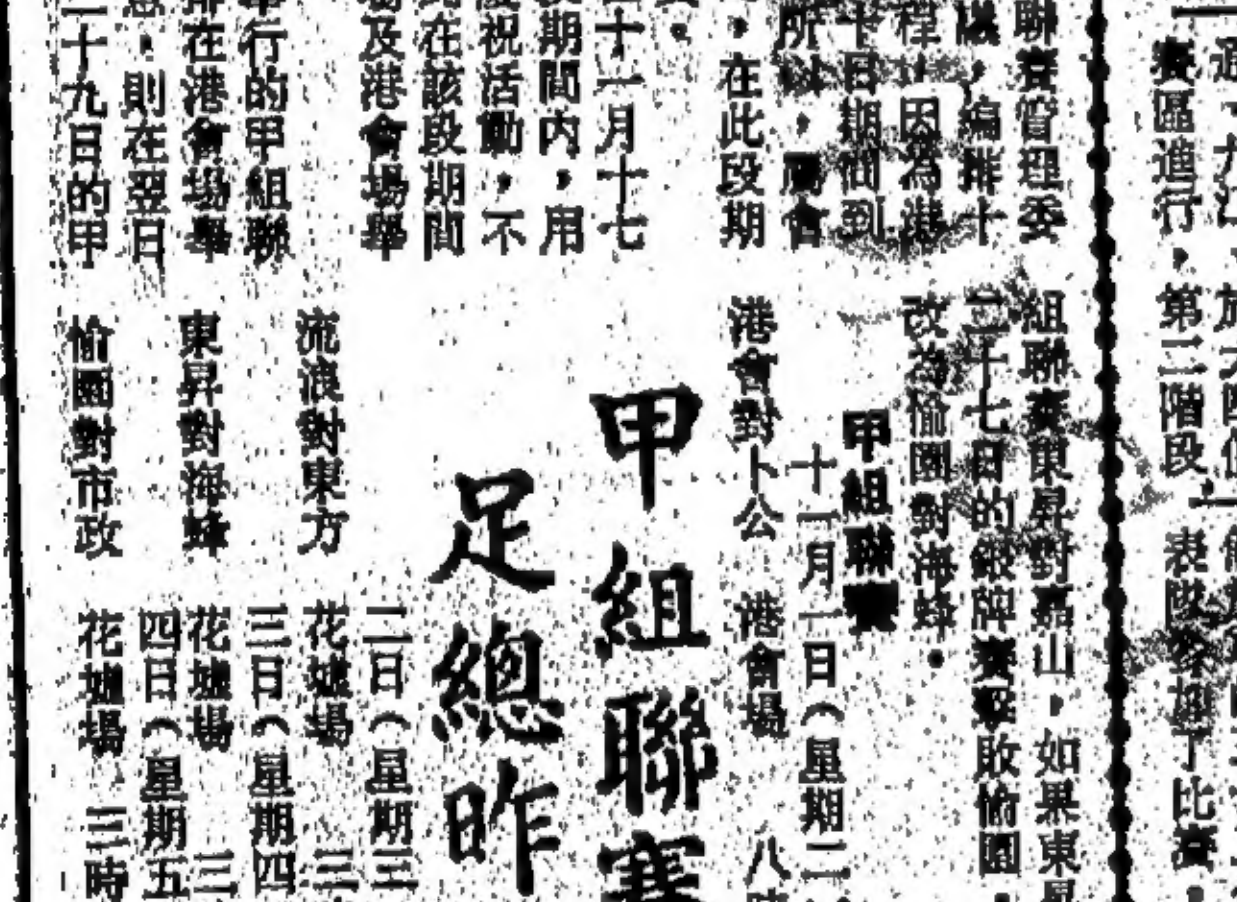 賽區進行，第二階段
聯賽管理委
議，編排十
程，因為港
十日期間到
所以，屬會
，在此段期
十一月十七
期間内，用
祝活動，不
在該段期間
及港會場舉
行的甲組聯
在港會場舉
，則在翌日
二十九日的甲
組聯賽東昇對嘉山，如果東昇
二十七日的銀牌賽擊敗愉園，
改為愉園對海蜂。
甲組聯賽
十一月一日（星期二
港會對卜公 港會場 八時
甲組聯賽
足總昨
二日（星期三
流浪對東方 花墟場 三
三日（星期四
東昇對海蜂 花墟場 三
四日（星期五
愉園對市政 花墟場 三時